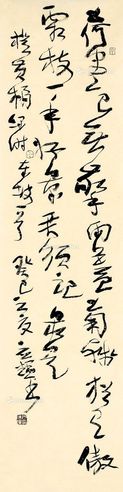 荷盡已無擎雨蓋菊殘猶有傲
霜枝一年好景君須記最是
橙黄橘绿时 東坡一首 癸巳 夏 书